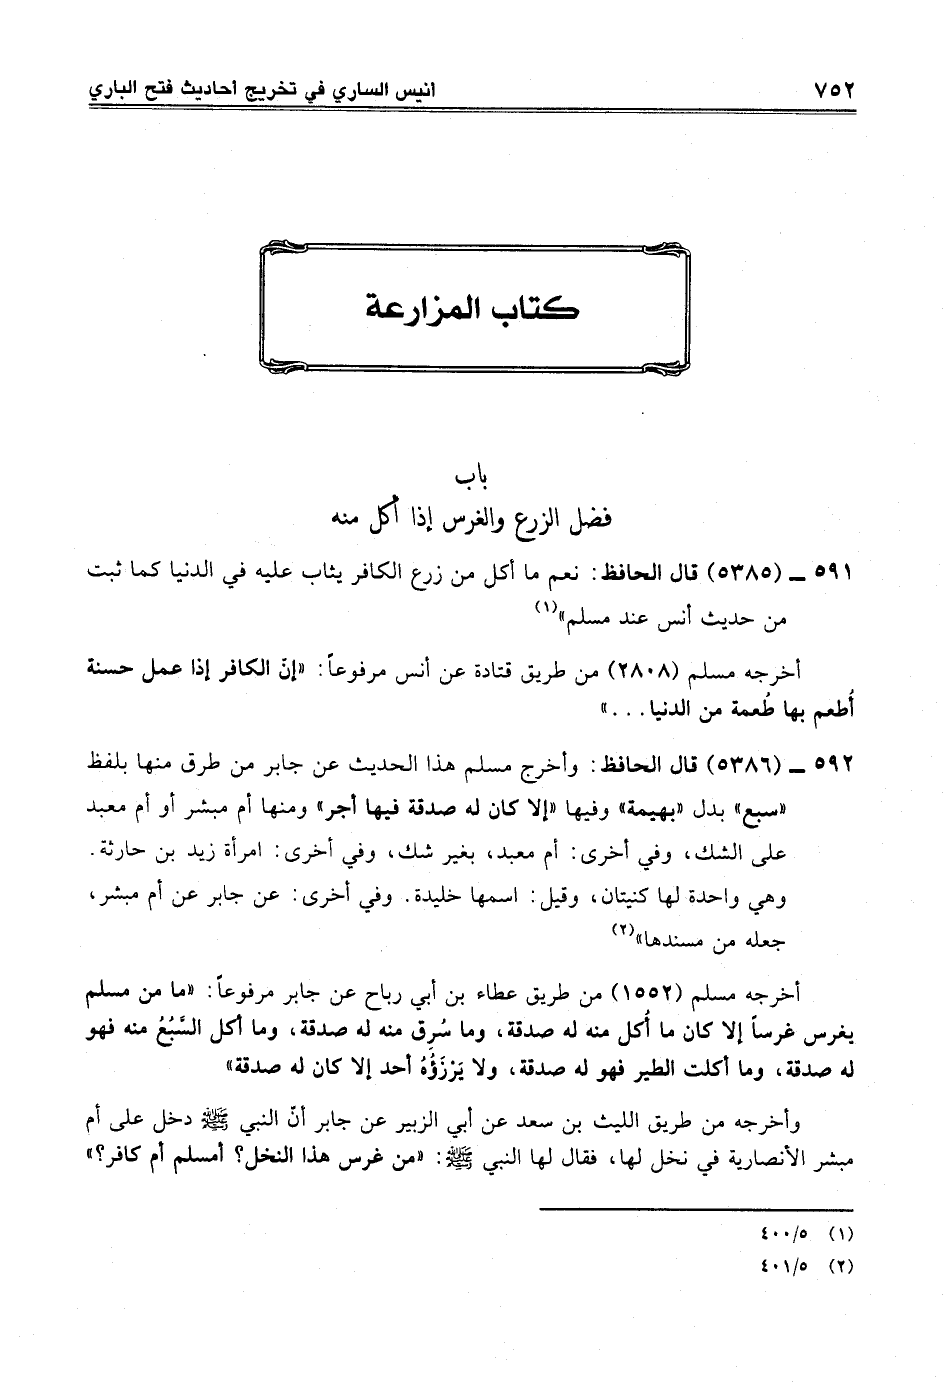 ٧٥٢ أنيس الساري في تخريج أحاديث فتح الباري
كتاب المزارعة
باب
فضل الزرع والغرس إذا أكل منه
٥٩١ ـ (٥٣٨٥) قال الحافظ: نعم ما أكل من زرع الكافر يثاب عليه في الدنيا كما ثبت
من حديث أنس عند مسلم»(١)
أخرجه مسلم (٢٨٠٨) من طريق قتادة عن أنس مرفوعاً: «إنّ الكافر إذا عمل حسنة
أُطعم بها طُعمة من الدنيا...»
٥٩٢ ـ (٥٣٨٦) قال الحافظ: وأخرج مسلم هذا الحديث عن جابر من طرق منها بلفظ
«سبع» بدل «بهيمة» وفيها «إلا كان له صدقة فيها أجر» ومنها أم مبشر أو أم معبد
على الشك، وفي أخرى: أم معبد، بغير شك، وفي أخرى: امرأة زيد بن حارثة.
وهي واحدة لها كنيتان، وقيل: اسمها خليدة. وفي أخرى: عن جابر عن أم مبشر،
جعله من مسندها»(٢)
أخرجه مسلم (١٥٥٢) من طريق عطاء بن أبي رباح عن جابر مرفوعاً: «ما من مسلم
يغرس غرساً إلا كان ما أُكل منه له صدقة، وما سُرِق منه له صدقة، وما أكل السَّبُعُ منه فهو
له صدقة، وما أكلت الطير فهو له صدقة، ولا يَرْزَؤُهُ أحد إلا كان له صدقة»
وأخرجه من طريق الليث بن سعد عن أبي الزبير عن جابر أنّ النبي ﷺ دخل على أم
مبشر الأنصارية في نخل لها، فقال لها النبي ﷺ: «من غرس هذا النخل؟ أمسلم أم كافر؟»
(١) ٤٠٠/٥
(٢) ٤٠١/٥